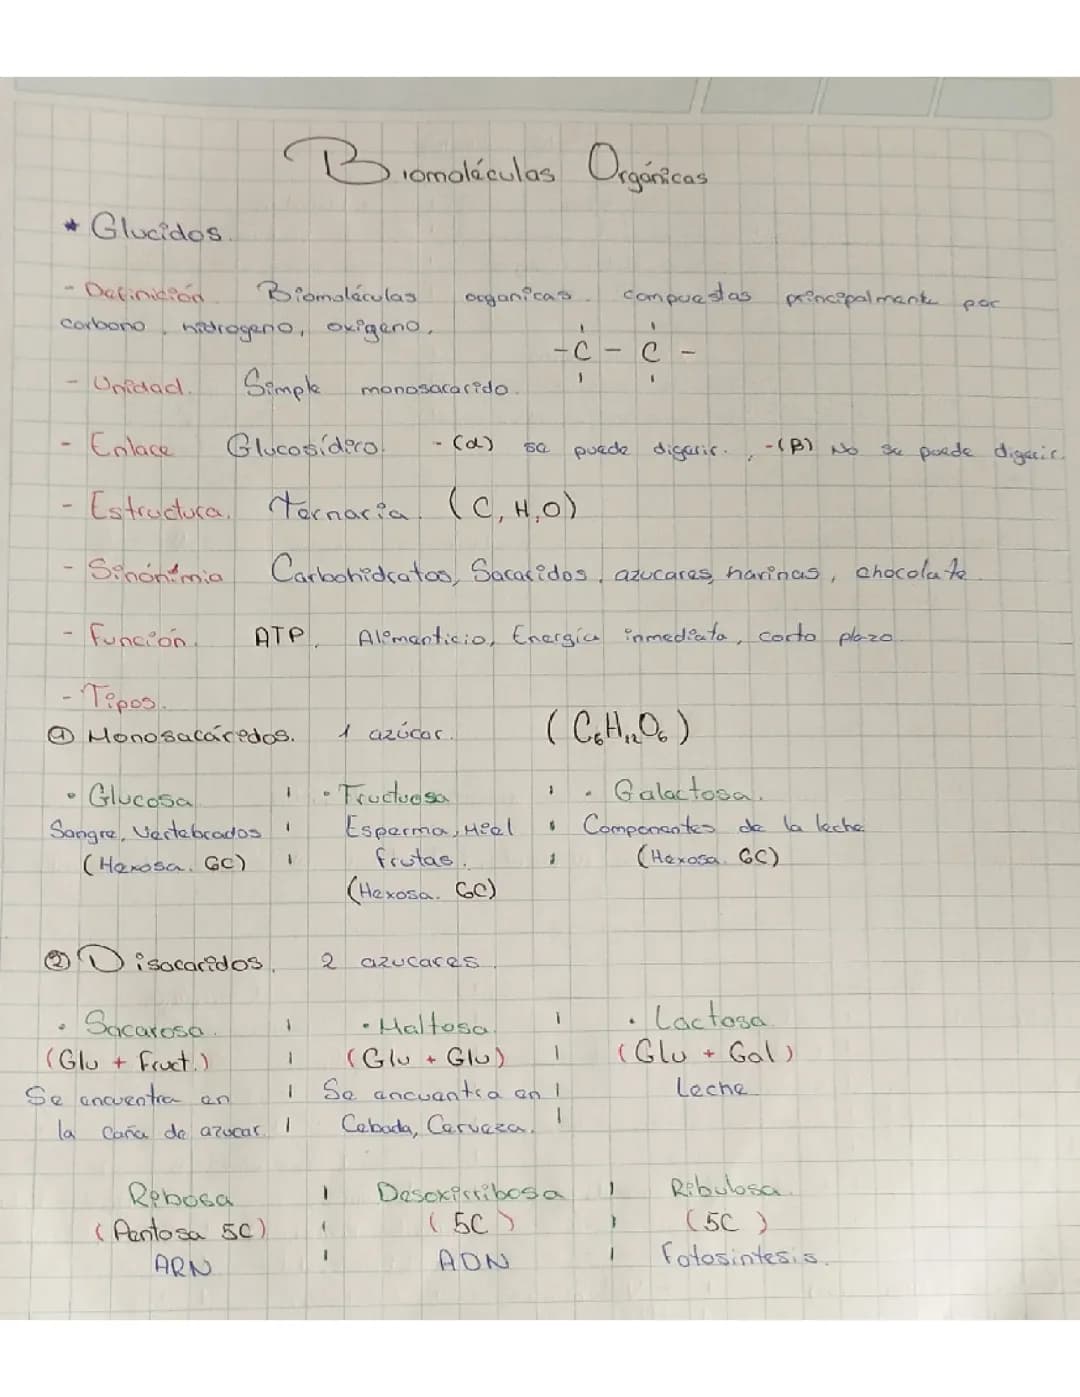 Biomoléculas Orgánicas
* Glucidos.
- Definición. Biomoléculas organicas. compuestas principalmente por
carbono, hidrogeno, oxigeno.
- C - C -
- Unidad. Simple monosacarido.
- Enlace Glucosídico. - (α) se puede digerir. , - (β) No se puede digerir.
- Estructura. Ternaria. (C, H, O)
- Sinónimia Carbohidratos, Sacaridos, azucares, harinas, chocolate.
- Función. ATP. Alimenticio, Energía inmediata, corto plazo.
- Tipos.
① Monosacáridos. 1 azúcar. (C₆H₁₂O₆)
• Glucosa • Fructuosa • Galactosa.
Sangre, Vertebrados Esperma, Miel Componentes de la leche
(Hexosa. 6C) frutas. (Hexosa. 6C)
(Hexosa. 6C)
② Disacaridos. 2 azucares.
• Sacarosa. • Maltosa. • Lactosa
(Glu + Fruct.) (Glu + Glu) (Glu + Gal)
Se encuentra en Se encuentra en Leche
la caña de azucar. Cebada, Cerveza.
Ribosa Desoxirribosa Ribulosa.
(Pentosa 5C) (5C) (5C)
ARN ADN Fotosintesis.